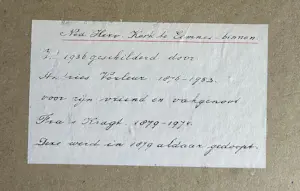 Ned. Herv. Kerk te Eemnes-binnen
In 1936 geschilderd door
Andries Verleur 1876-1953.
voor zijn vriend en vakgenoot
Frans Kragt. 1879-197
Deze werd in 1879 aldaar gedoopt.